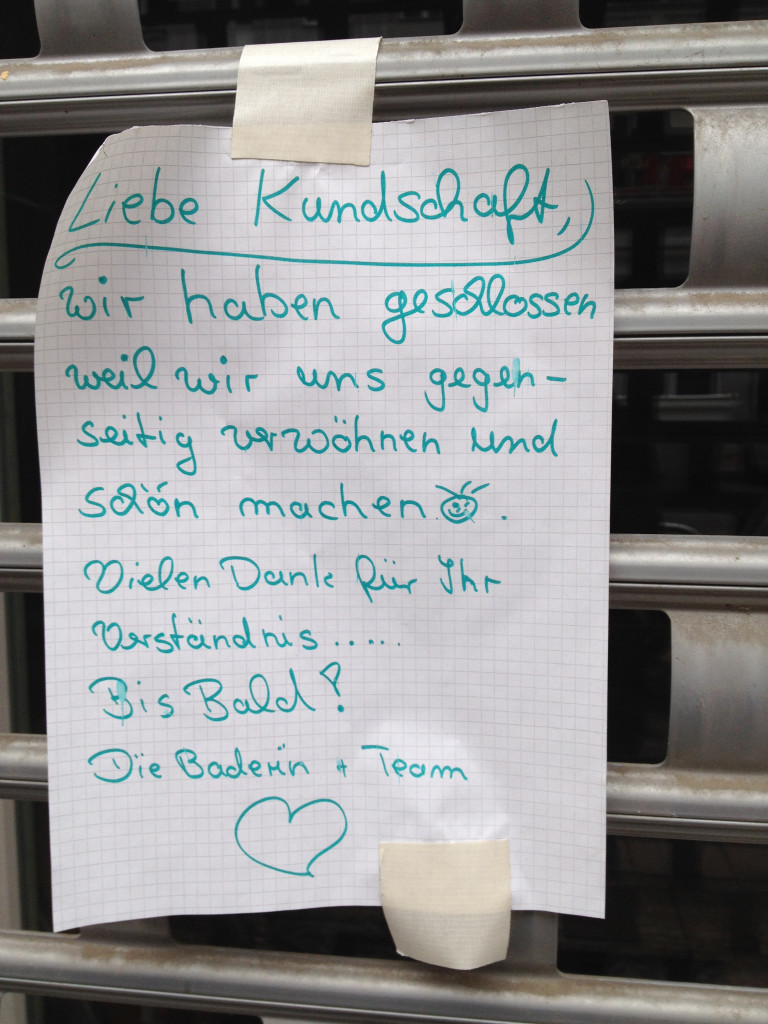 Liebe Kundschaft,
wir haben geschlossen
weil wir uns gegen-
seitig verwöhnen und
schön machen .
Vielen Dank für Ihr
Verständnis.....
Bis Bald!
Die Baderin + Team